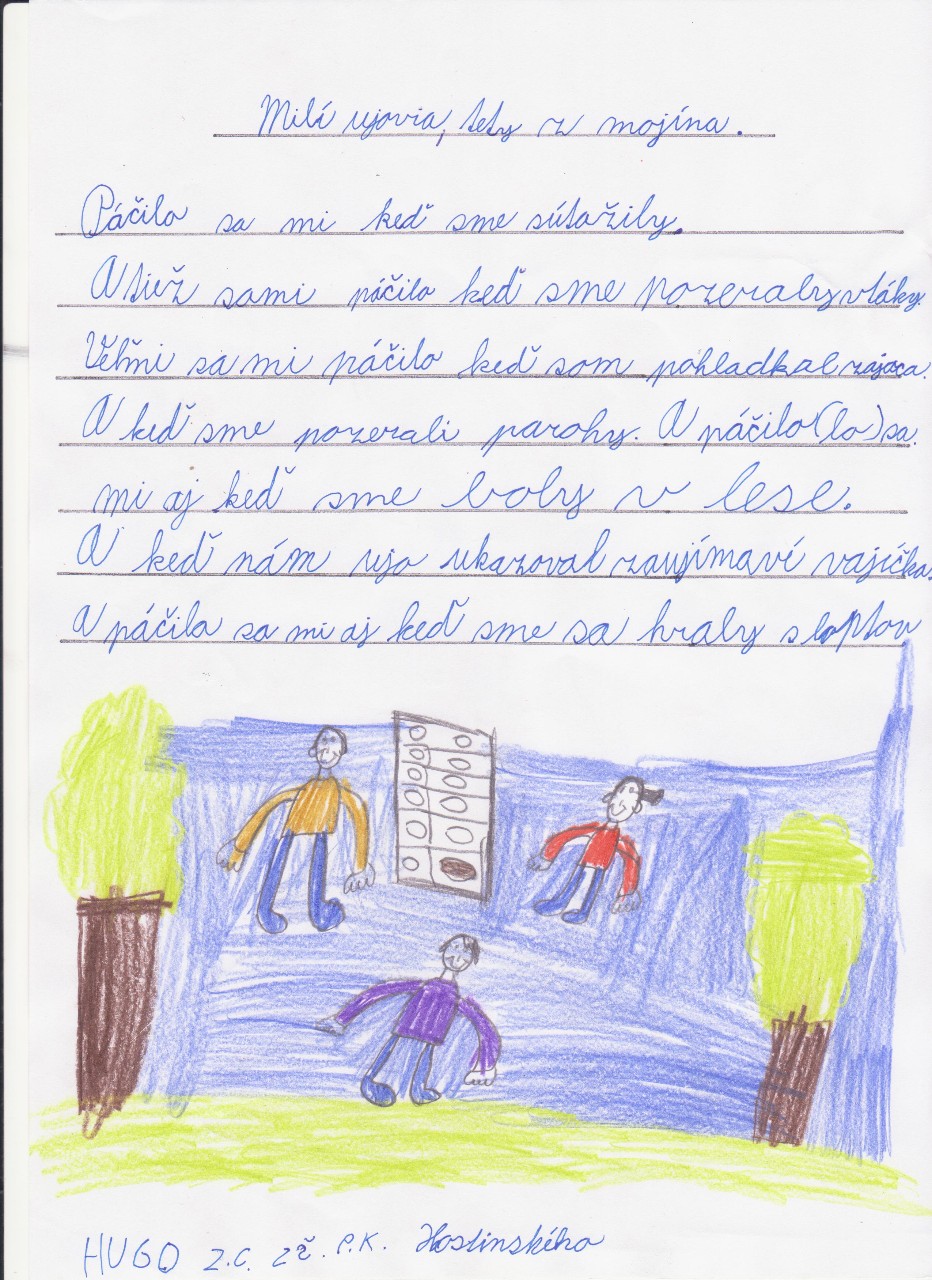 Milí ujovia, tety z mojína.
Páčilo sa mi keď sme súťažily.
A tiež sami páčilo keď sme pozeraly vtáky.
Veľmi sa mi páčilo keď som pohladkal zajaca.
A keď sme pozerali parohy. A páčilo(lo) sa
mi aj keď sme boly v lese.
A keď nám ujo ukazoval zaujímaví vajíčka.
A páčila sa mi aj keď sme sa hraly s loptou
HUGO 2.C. ZŠ. P.K. Hostinského